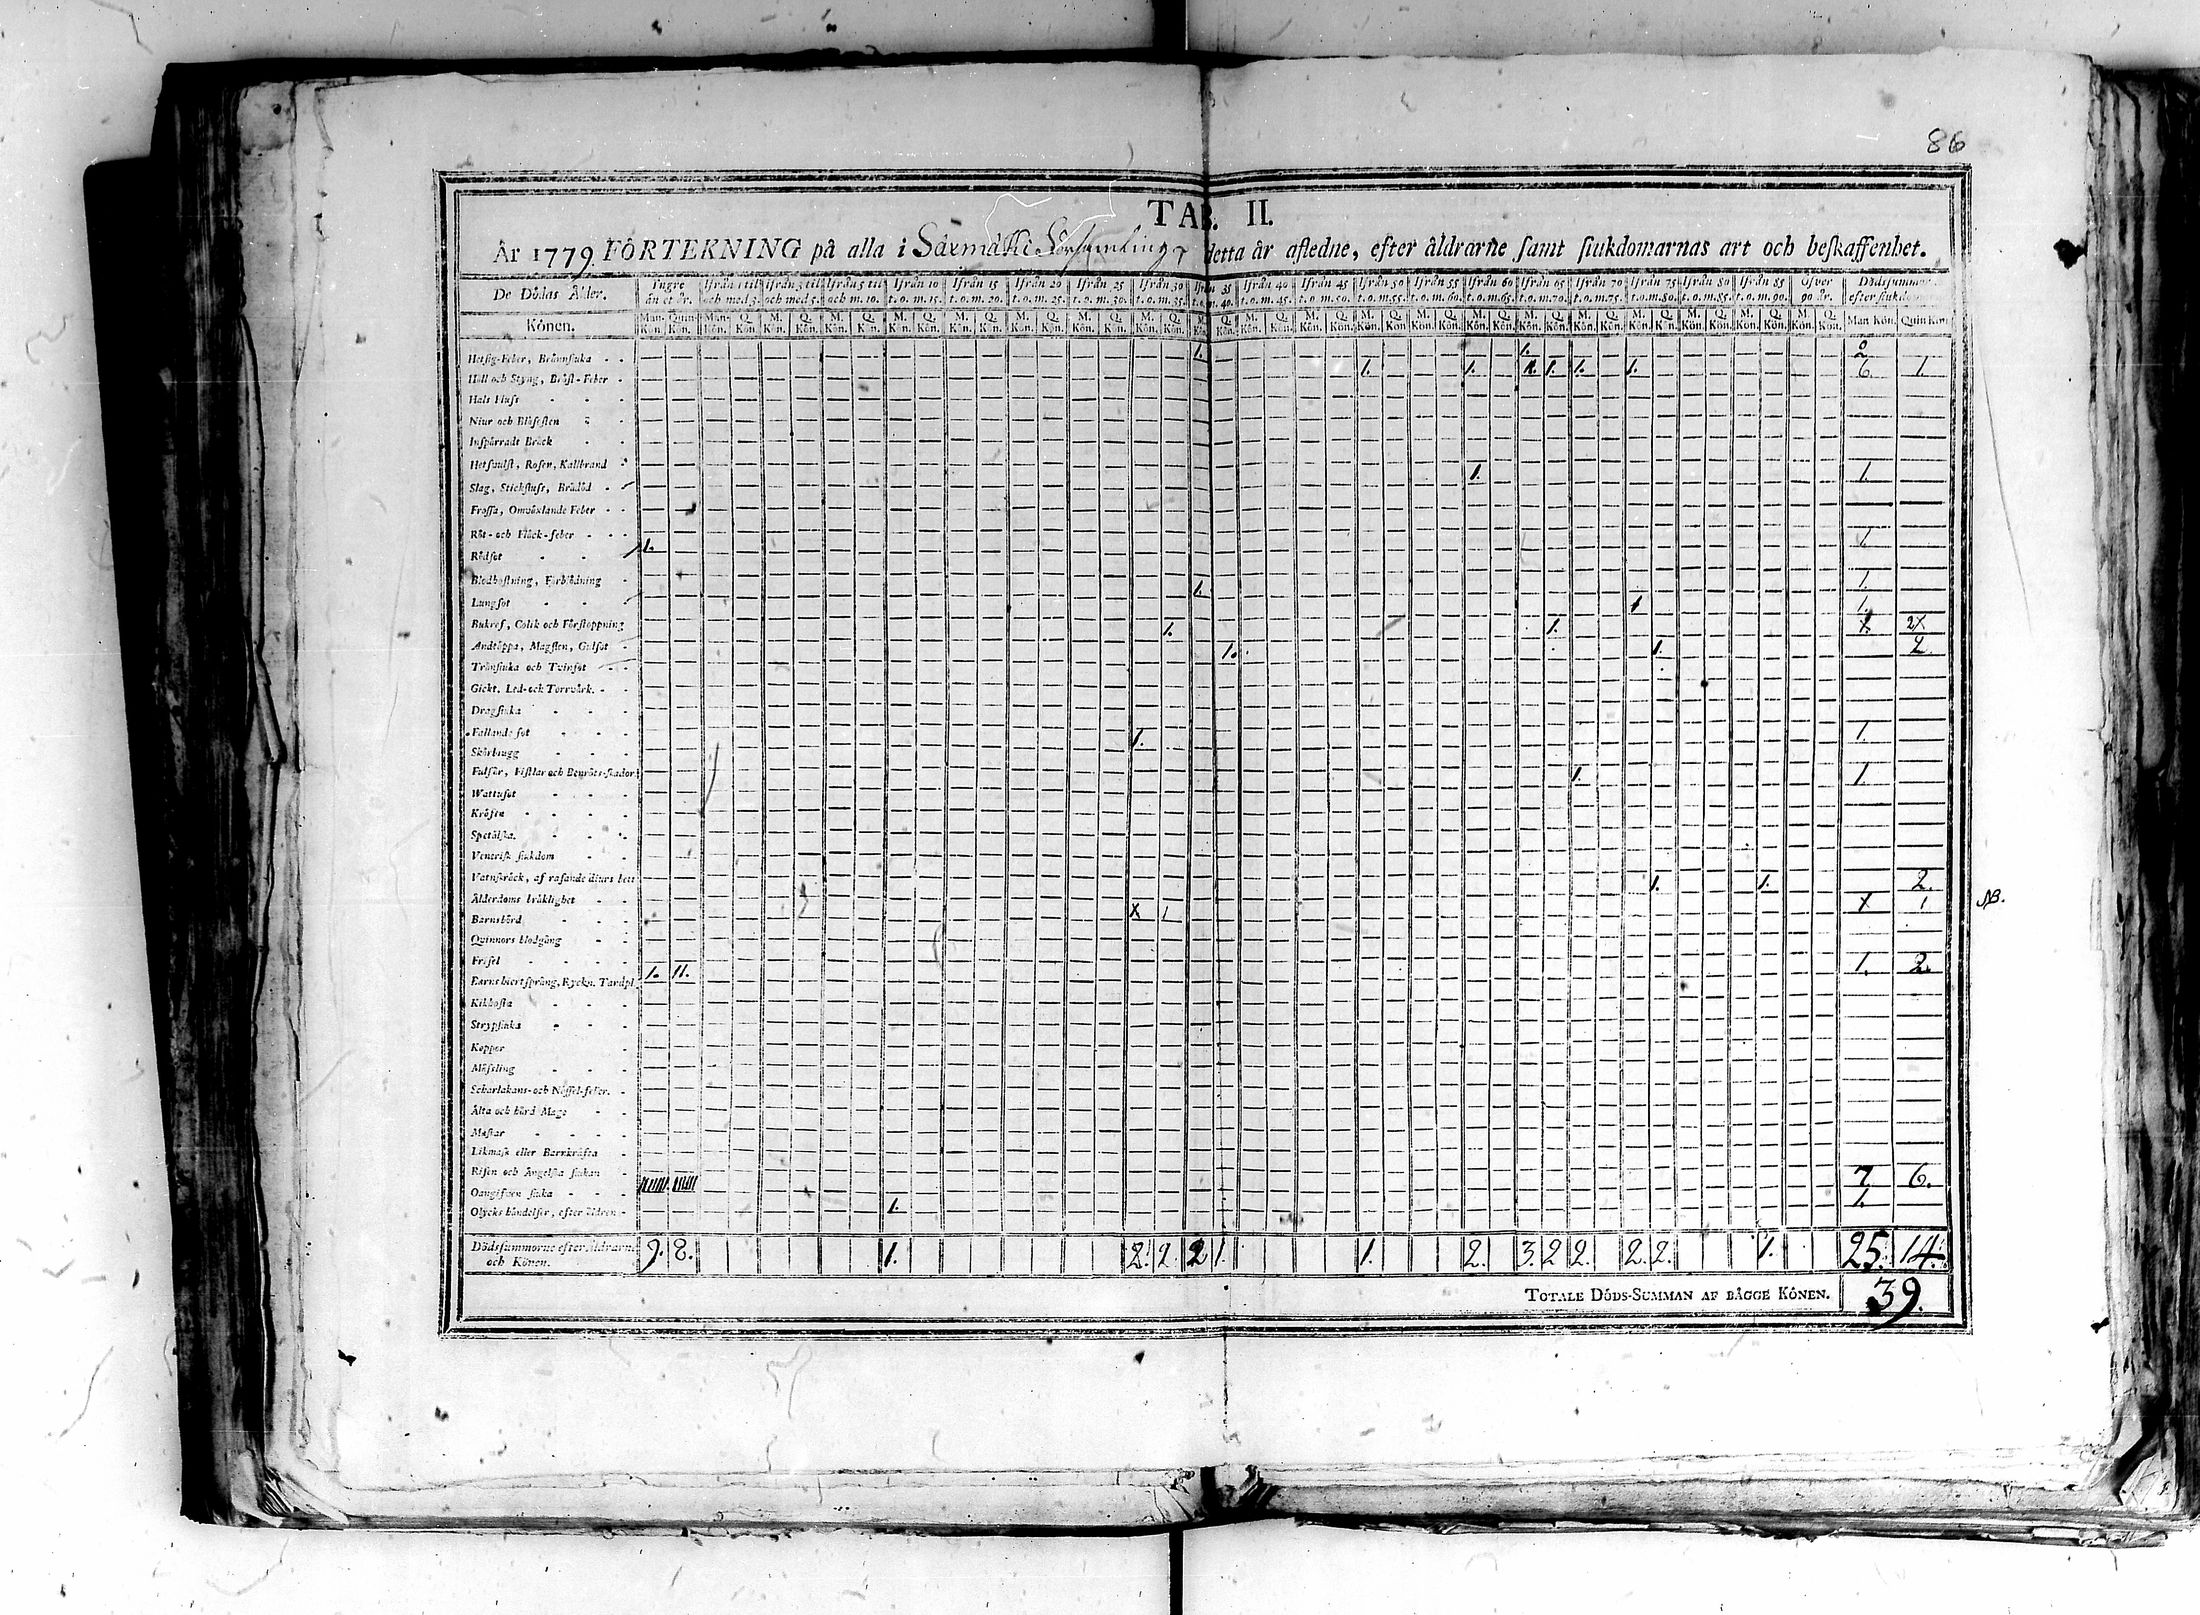 86
TAB. II.
År 1779 FÖRTEKNING på alla i Församling detta år afledne, efter åldrarne samt siukdomarnas art och beskaffenhet.
De Dödas Ålder. Yngre än et år. Ifrån 1 til och med 3. Ifrån 3 til och med 5. Ifrån 5 til och m. 10. Ifrån 10 t.o.m. 15. Ifrån 15 t.o.m. 20. Ifrån 20 t.o.m. 25. Ifrån 25 t.o.m. 30. Ifrån 30 t.o.m. 35. Ifrån 35 t.o.m. 40. Ifrån 40 t.o.m. 45. Ifrån 45 t.o.m. 50. Ifrån 50 t.o.m. 55. Ifrån 55 t.o.m. 60. Ifrån 60 t.o.m. 65. Ifrån 65 t.o.m. 70. Ifrån 70 t.o.m. 75. Ifrån 75 t.o.m. 80. Ifrån 80 t.o.m. 85. Ifrån 85 t.o.m. 90. Öfver 90 år. Dödsummor efter siukdom
Könen. Man-Kön. Quin-Kön. Män-Kön. Q. Kön. M. Kön. Q. Kön. M. Kön. Q. Kön. M. Kön. Q. Kön. M. Kön. Q. Kön. M. Kön. Q. Kön. M. Kön. Q. Kön. M. Kön. Q. Kön. M. Kön. Q. Kön. M. Kön. Q. Kön. M. Kön. Q. Kön. M. Kön. Q. Kön. M. Kön. Q. Kön. M. Kön. Q. Kön. M. Kön. Q. Kön. M. Kön. Q. Kön. M. Kön. Q. Kön. M. Kön. Q. Kön. M. Kön. Q. Kön. M. Kön. Q. Kön. Man Kön. Quin Kön.
Hetsig-Feber, Brännsiuka 1. 1. 2
Håll och Styng, Bröst-Feber 1. 1. 1. 1. 1. 6. 1.
Hals Fluss
Niur och Blåsesten
Inspärradt Bråck
Hetsvulst, Rosen, Kallbrand
Slag, Stickfluss, Brådöd 1. 1.
Frossa, Omväxlande Feber
Röt- och Fläck-feber
Rödsot 1. 1.
Blodhostning, Förblödning
Lungsot 1. 1.
Bukref, Colik och Förstoppning 1 1.
Andtäppa, Magsten, Gulsot 1. 1. X 2X
Tränsiuka och Tvinsot 1. 1. 2
Gickt, Led- och Torrvärk.
Dragsiuka
Fallande sot
Skörbiugg 1. 1.
Fulsår, Fistlar och Benröts-skador
Wattusot 1. 1.
Kräfta
Spetälska.
Venerisk siukdom
Vatuskräck, af rasande diurs bett
Ålderdoms bräklighet 1. 1. 2.
Barnsbörd X 1 X 1 NB.
Quinnors blodgång
Frisel
Barns hiertsprång, Ryckn. Tandpl. 1. 11. 1. 2.
Kikhosta
Strypsiuka
Koppor
Mässling
Scharlakans- och Nässel-feber.
Älta och hård Mage
Maskar
Likmask eller Barnkräfta
Risen och Ängelska siukan
Oangifven siuka 7. 6.
Olycks händelser, efter åldren 1. 1.
Dödssummorne efter åldrarne och Könen. 9. 8. 1. 2. 2. 2 1. 1. 2. 3. 2 2. 2. 2. 1. 25. 14.
TOTALE DÖDS-SUMMAN AF BÄGGE KÖNEN. 39.